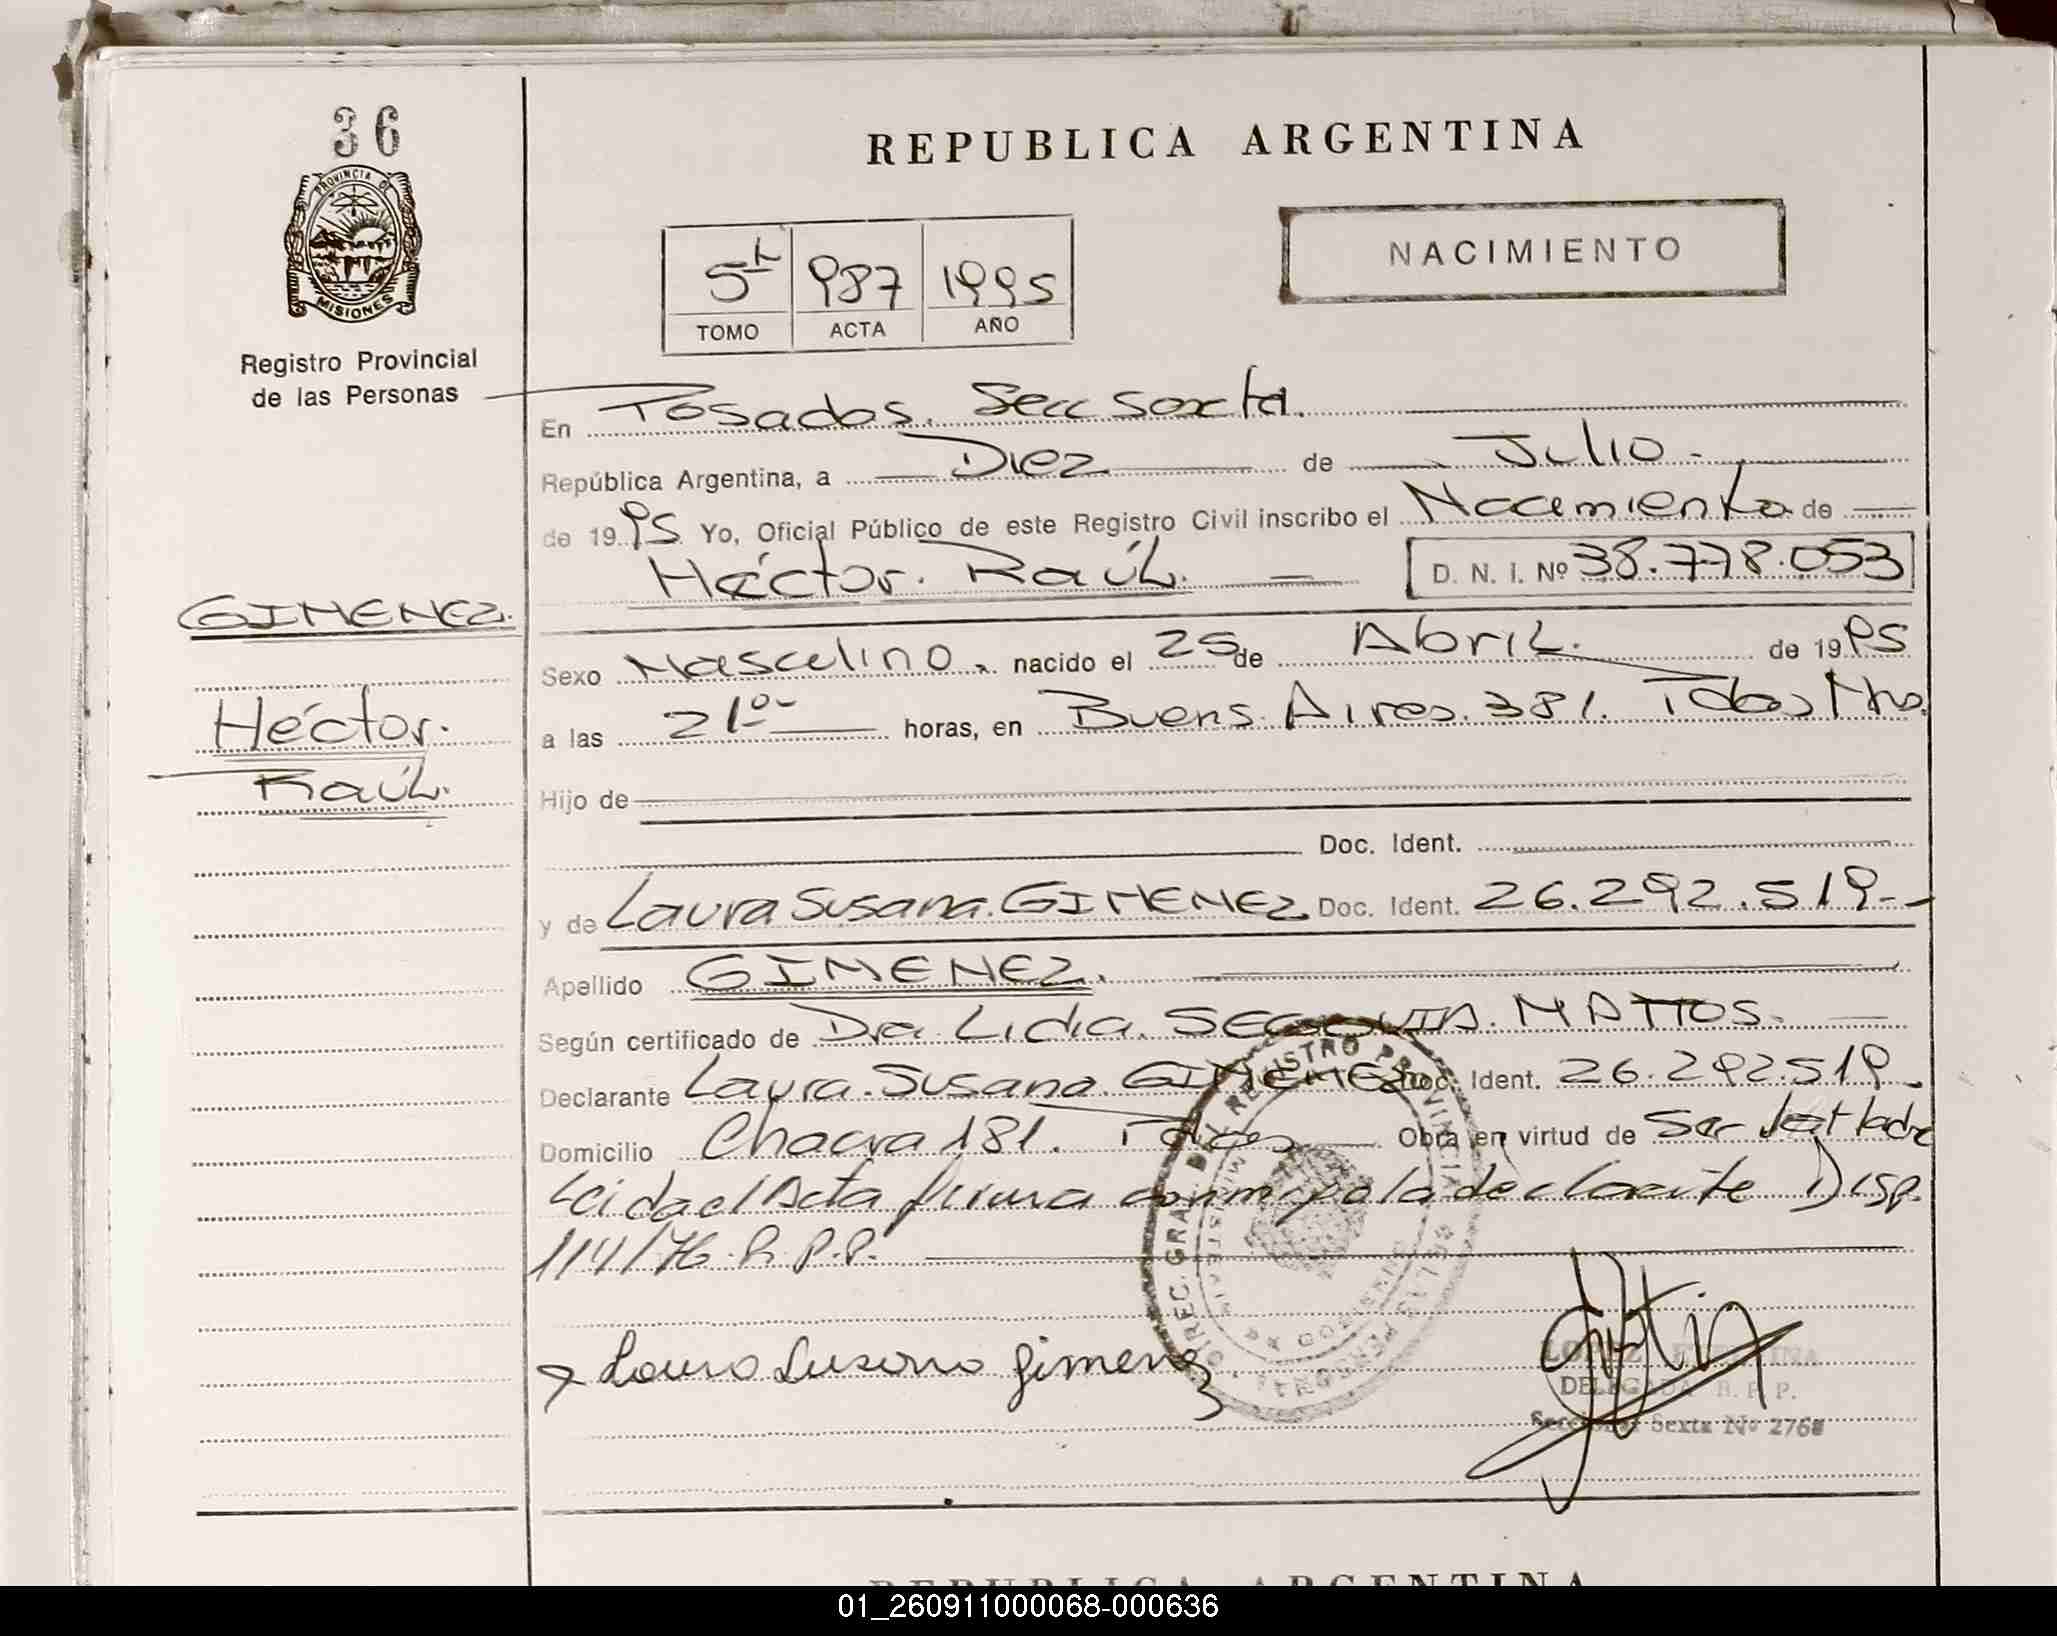 36
PROVINCIA DE
MISIONES
Registro Provincial
de las Personas
REPUBLICA ARGENTINA
5h 987 1995
TOMO ACTA AÑO
NACIMIENTO
En Posadas. Secc sexta.
República Argentina, a Diez de Julio.
de 1995 Yo, Oficial Público de este Registro Civil inscribo el Nacimiento de
Héctor. Raúl. D. N. I. Nº 38.778.053
GIMENEZ.
Héctor.
Raúl.
Sexo Masculino. nacido el 25 de Abril. de 1995
a las 21º- horas, en Buens. Aires. 381. Pdas Mnes.
Hijo de
Doc. Ident.
y de Laura Susana. GIMENEZ Doc. Ident. 26.292.519.-
Apellido GIMENEZ.
Según certificado de Dra. Lidia. SEGOVIA. MATTOS.
Declarante Laura. Susana. GIMENEZ Doc. Ident. 26.292.519.
Domicilio Chacra 181. Pdas Obra en virtud de Ser
Leida el Acta firma conmigo la declarante Disp.
114/76. R.P.P.
DIREC. GRAL. DEL REGISTRO PROVINCIAL DE LAS PERSONAS
Laura Susana Gimenez
LOPEZ
DELEGADA R. P. P.
Seccional Sexta Nº 2768
REPUBLICA ARGENTINA
01_260911000068-000636